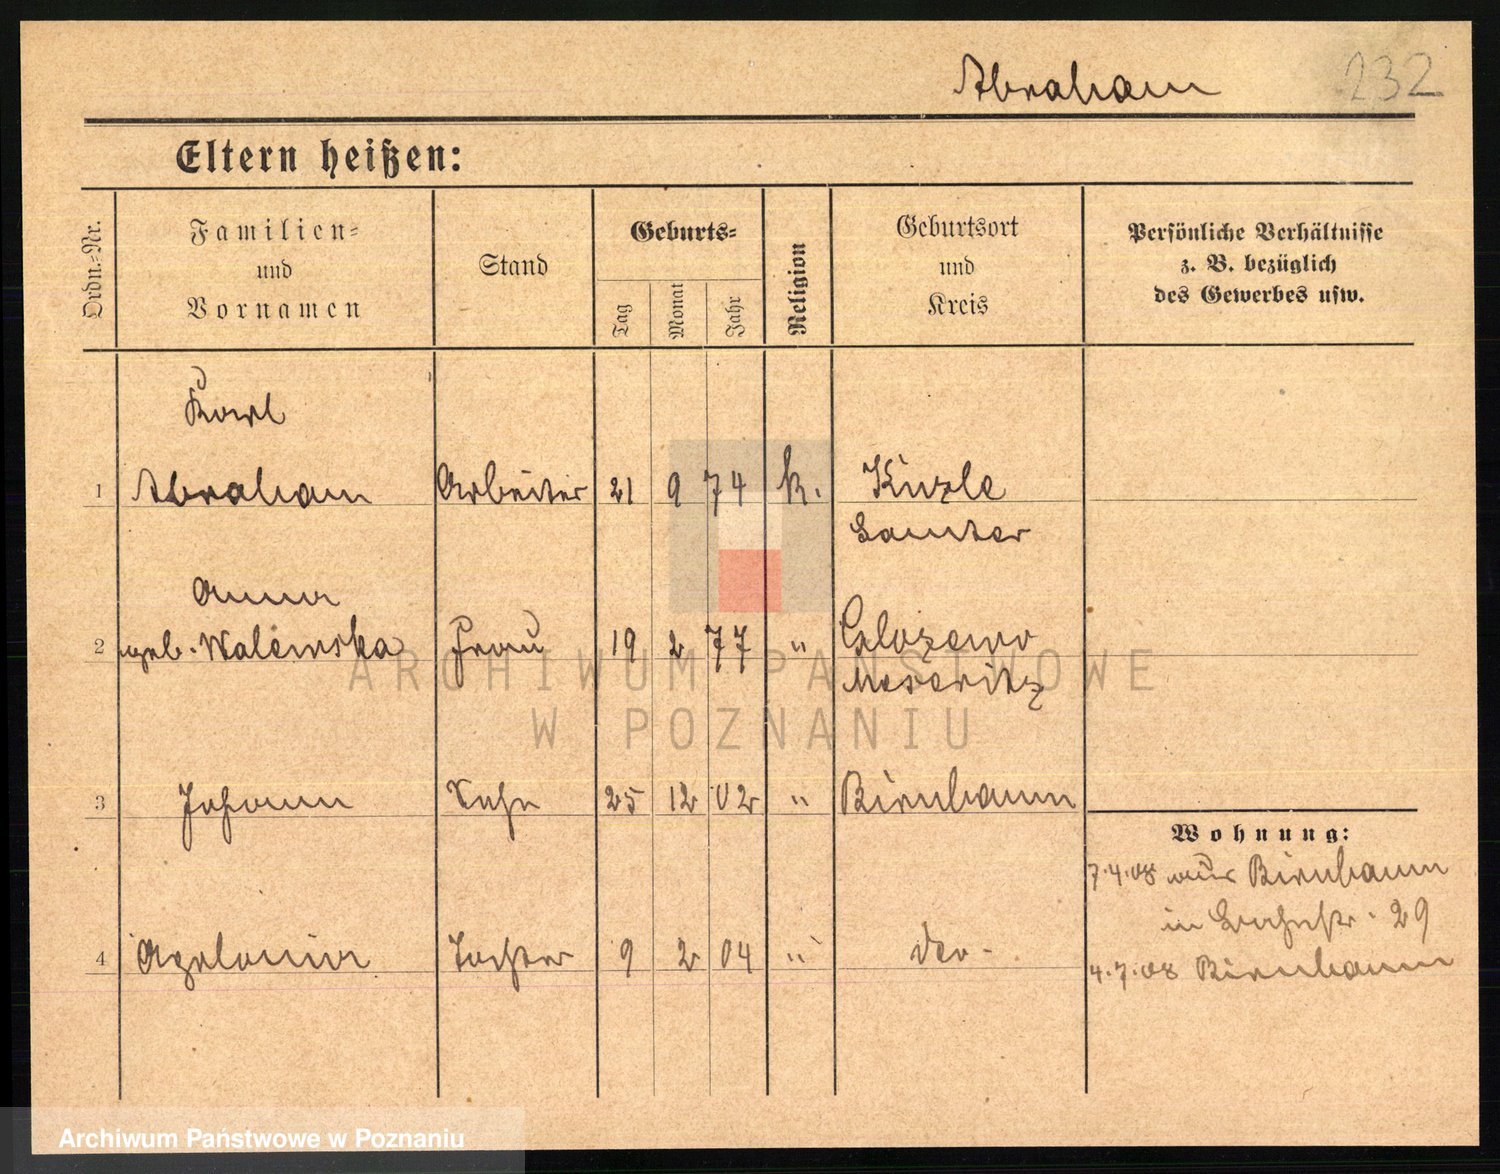 Abraham 232
Eltern heißen:
Ordn.-Nr.
Familien-
und
Vornamen
Stand
Geburts-
Tag
Monat
Jahr
Religion
Geburtsort
und
Kreis
Persönliche Verhältnisse
z. B. bezüglich
des Gewerbes usw.
Karl
1 Abraham Arbeiter 21 9 74 k. Kuzle
Samter
Anna
2 geb. Walenska Frau 19 2 77 "
Meseritz
3 Johann Sohn 25 12 02 " Birnbaum
Wohnung:
7.4.08 aus Birnbaum
in 29
4 Tochter 9 2 04 " do -
4.7.08 Birnbaum
ARCHIWUM PAŃSTWOWE
W POZNANIU
Archiwum Państwowe w Poznaniu